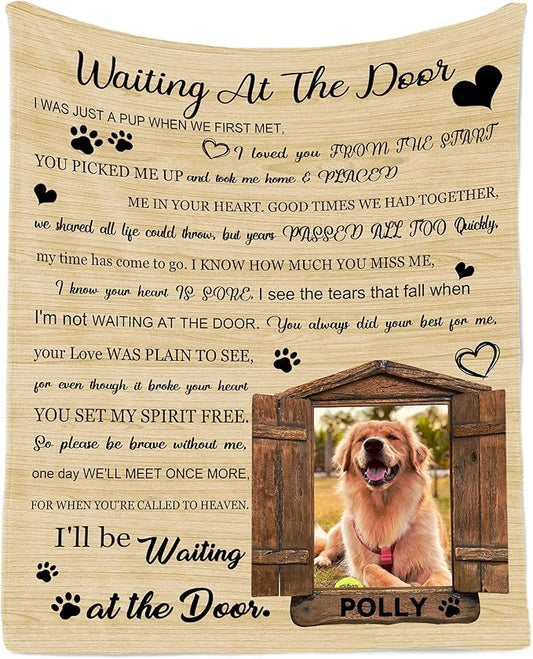 Waiting At The Door
I WAS JUST A PUP WHEN WE FIRST MET,
I loved you FROM THE START
YOU PICKED ME UP and took me home & PLACED
ME IN YOUR HEART. GOOD TIMES WE HAD TOGETHER,
we shared all life could throw, but years PASSED ALL TOO Quickly,
my time has come to go. I KNOW HOW MUCH YOU MISS ME,
I know your heart IS SORE. I see the tears that fall when
I'm not WAITING AT THE DOOR. You always did your best for me,
your Love WAS PLAIN TO SEE,
for even though it broke your heart
YOU SET MY SPIRIT FREE.
So please be brave without me,
one day WE'LL MEET ONCE MORE,
FOR WHEN YOU'RE CALLED TO HEAVEN.
I'll be Waiting
at the Door.
POLLY